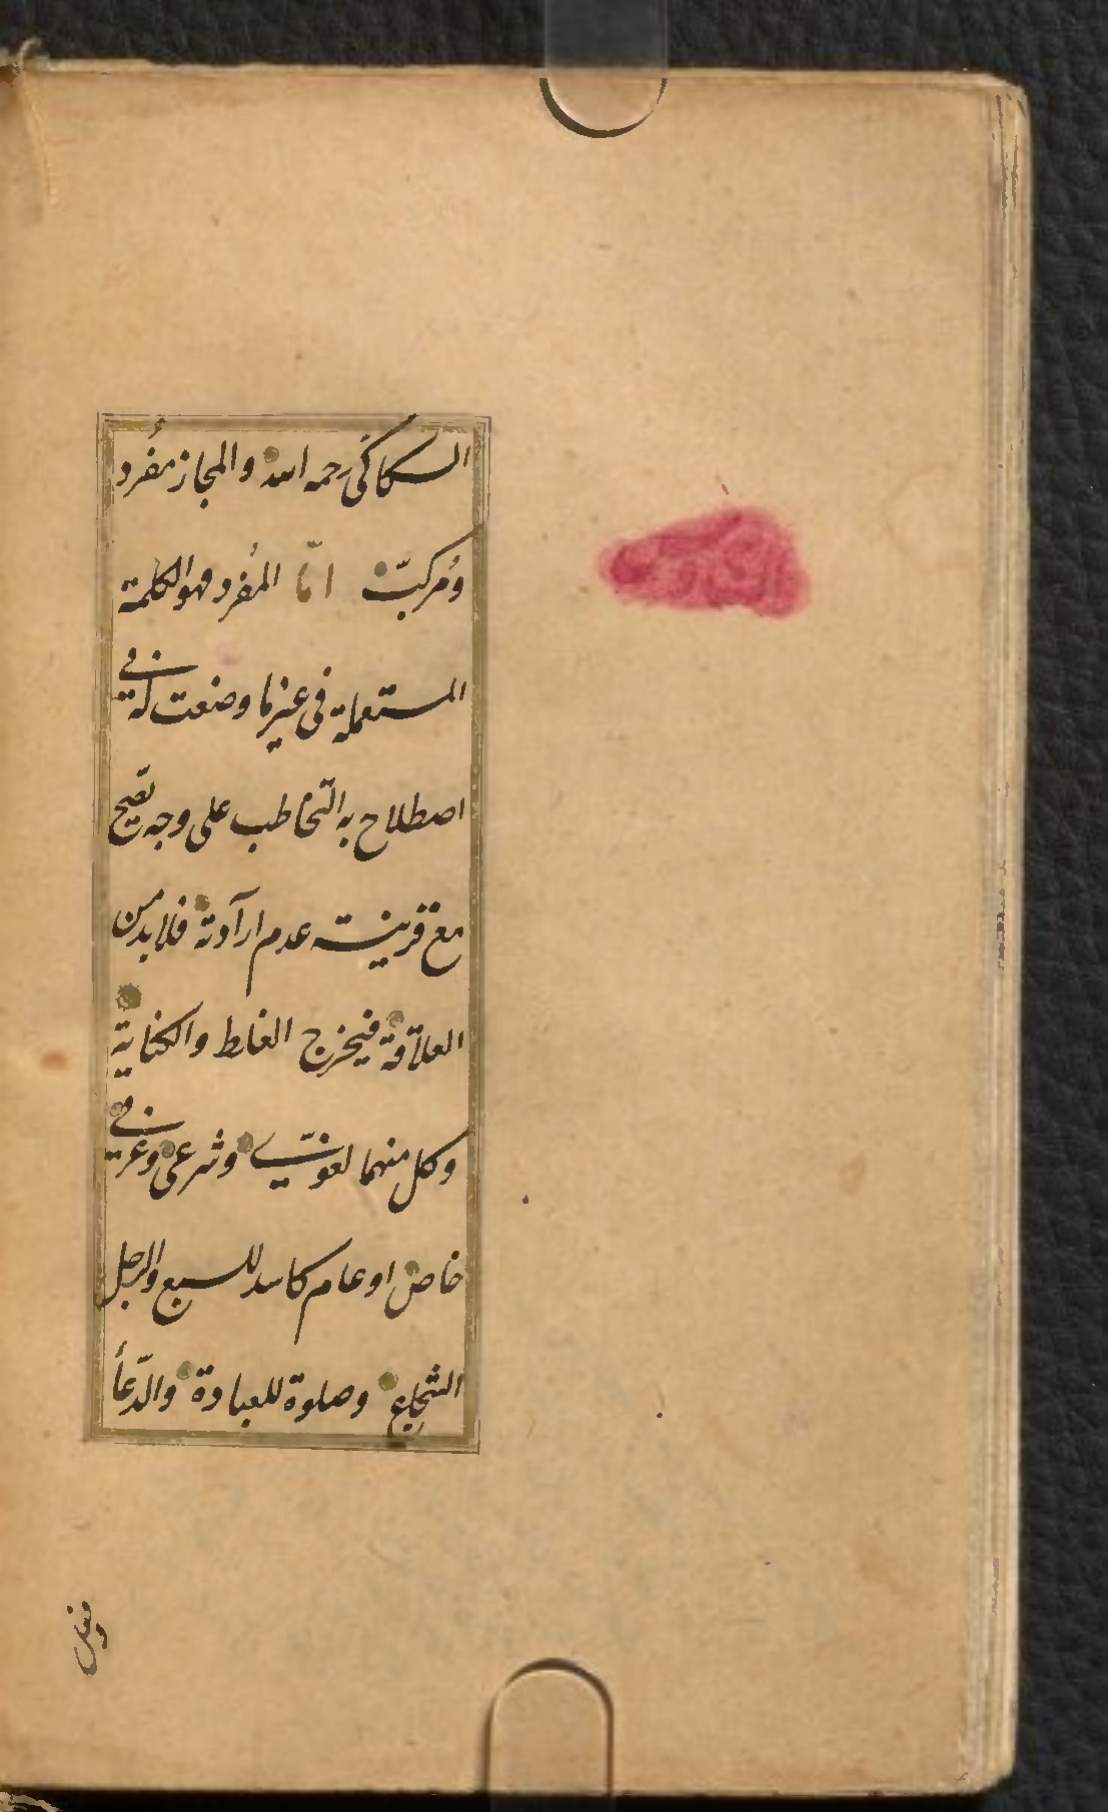 السكاكي رحمه الله والمجاز مفرد
ومركب امّا المفرد فهو الكلمة
المستعملة في غير ما وضعت له في
اصطلاح به التخاطب على وجه يصح
مع قرينة عدم ارادته فلابد من
العلاقة فيخرج الغلط والكناية
وكل منهما لغوي وشرعي وعرفي
خاص او عام كاسد للسبع والرجل
الشجاع وصلوة للعبادة والدّعأ
وفعل